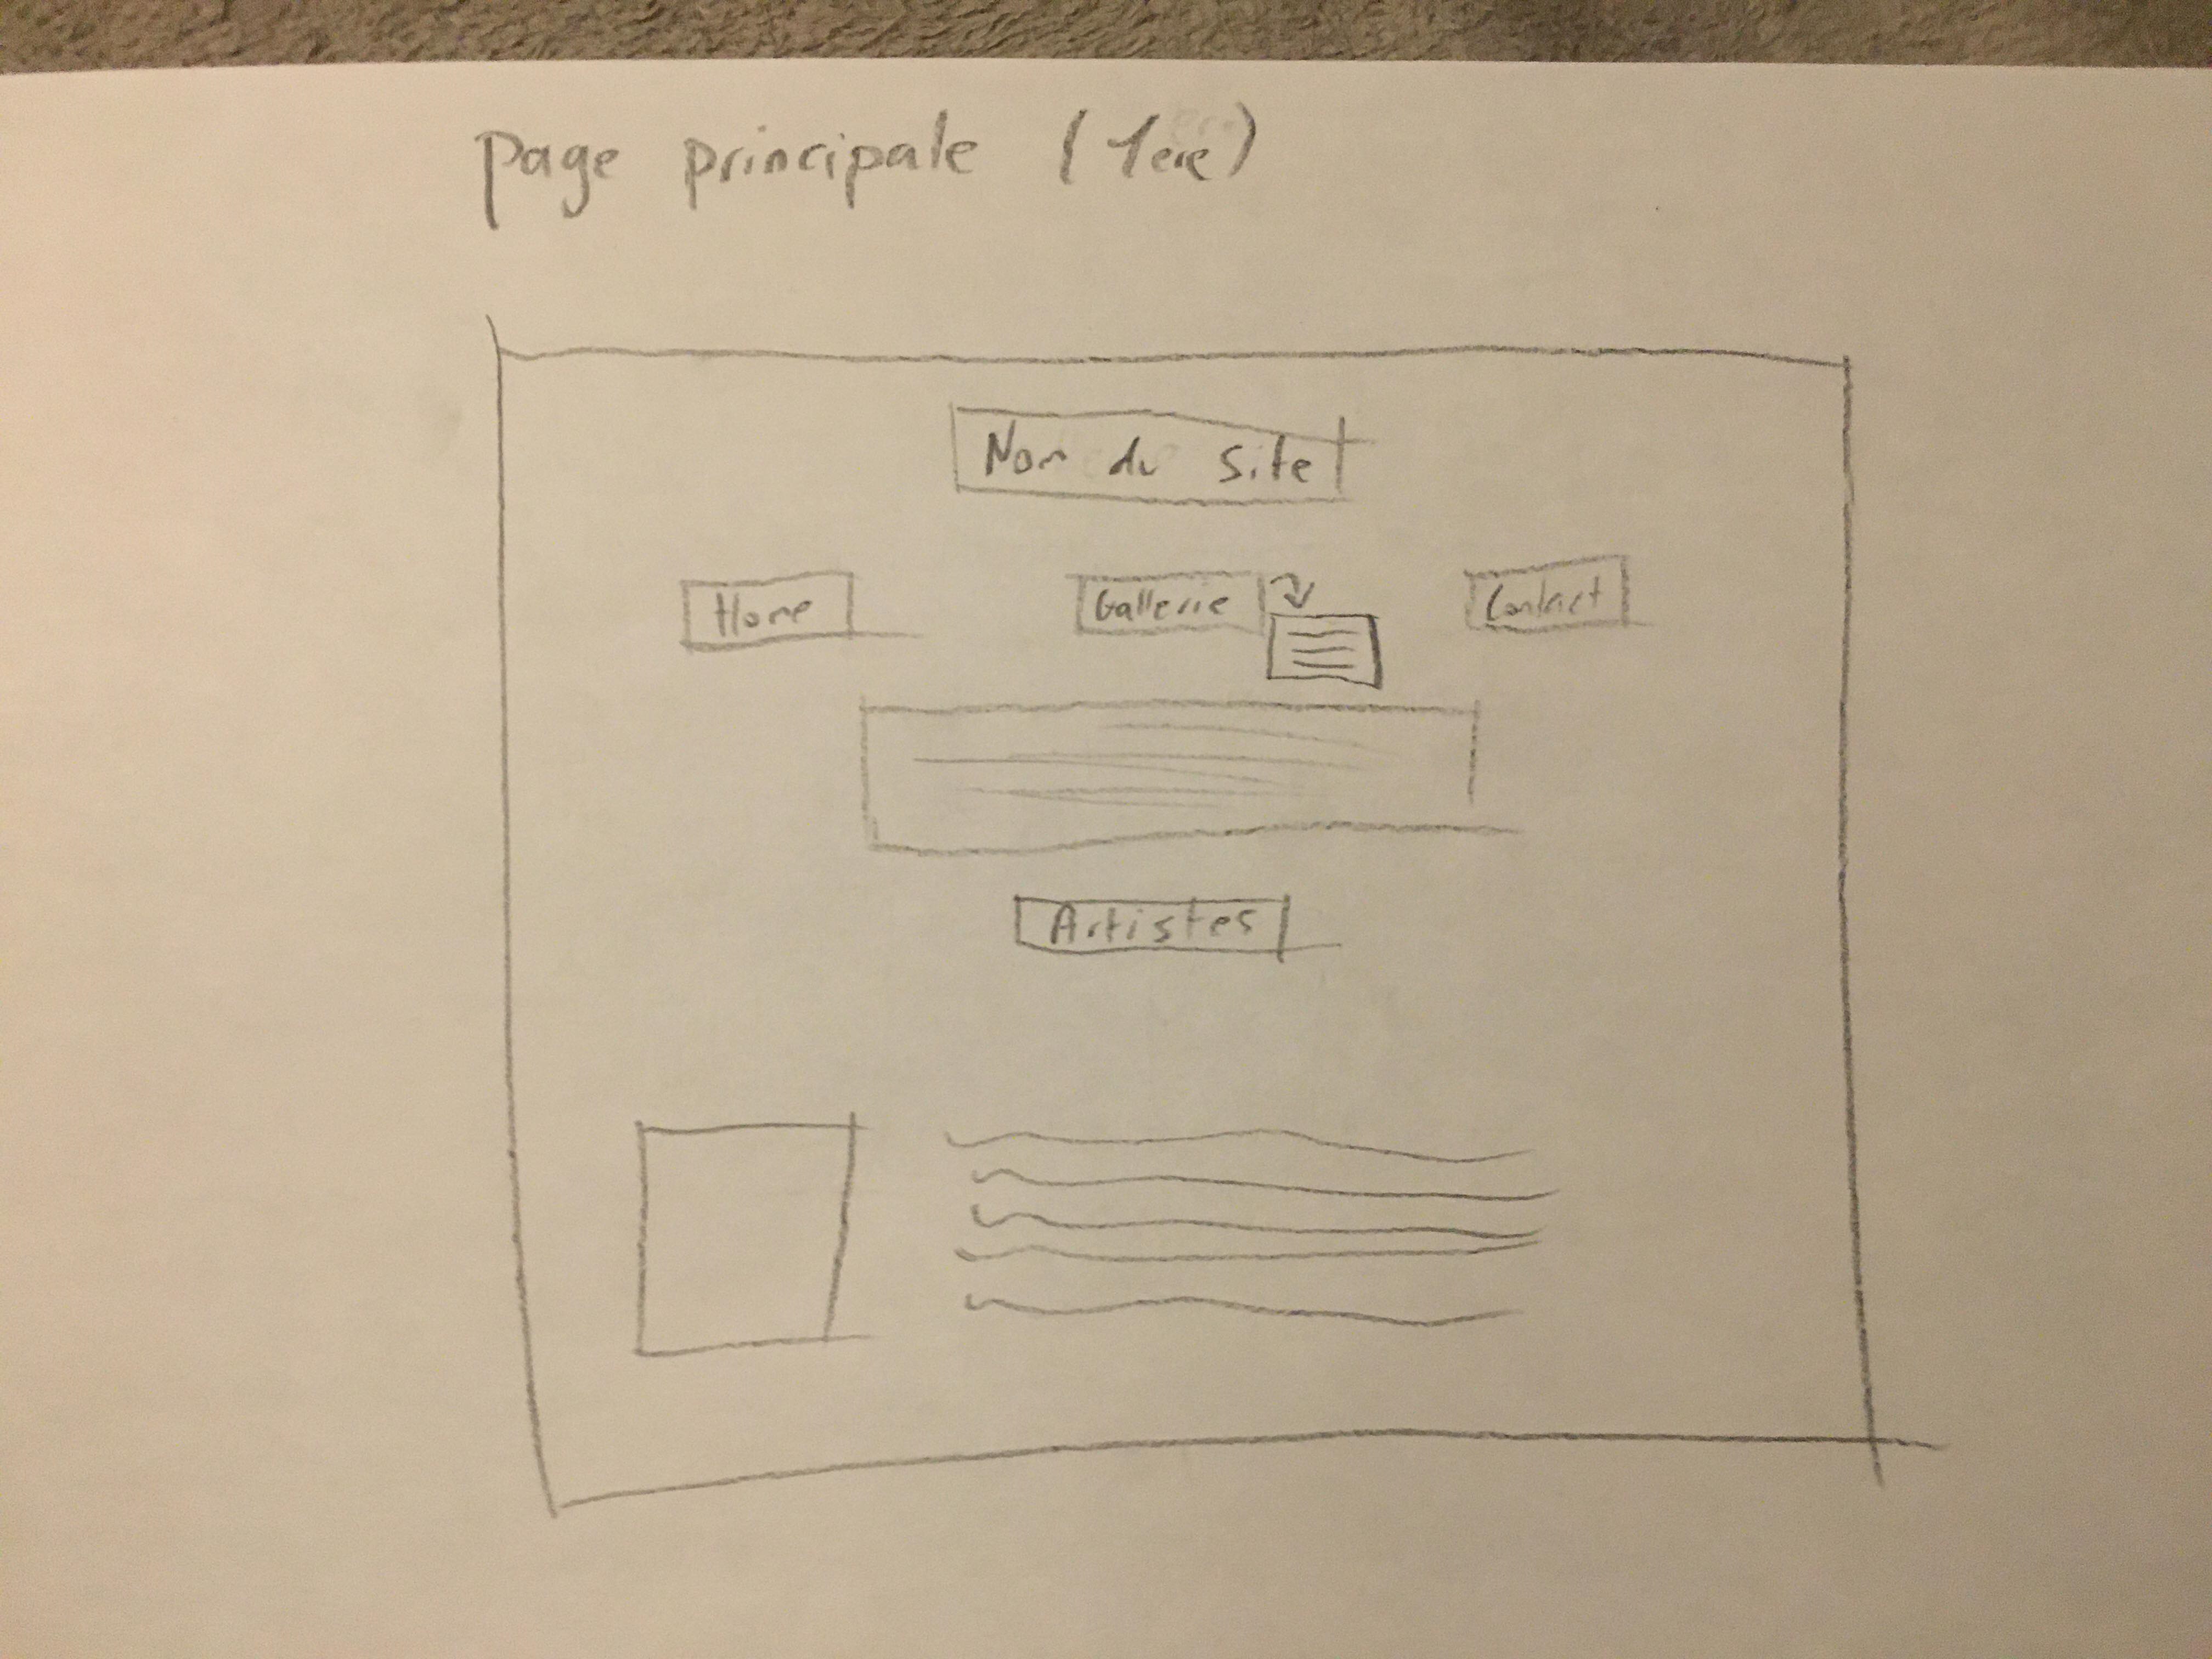 page principale (1ere)
Nom du Site
Home
Gallerie
Contact
Artistes